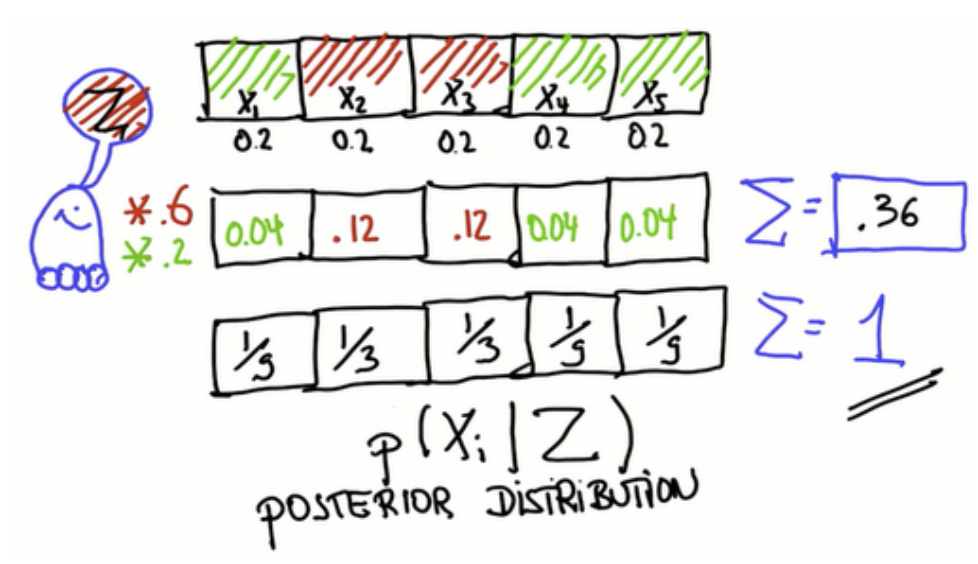 X₁ X₂ X₃ X₄ X₅
Z
0.2 0.2 0.2 0.2 0.2
*.6
*.2
0.04 .12 .12 0.04 0.04
Σ= .36
1/9 1/3 1/3 1/9 1/9
Σ= 1
p(Xᵢ|Z)
POSTERIOR DISTRIBUTION